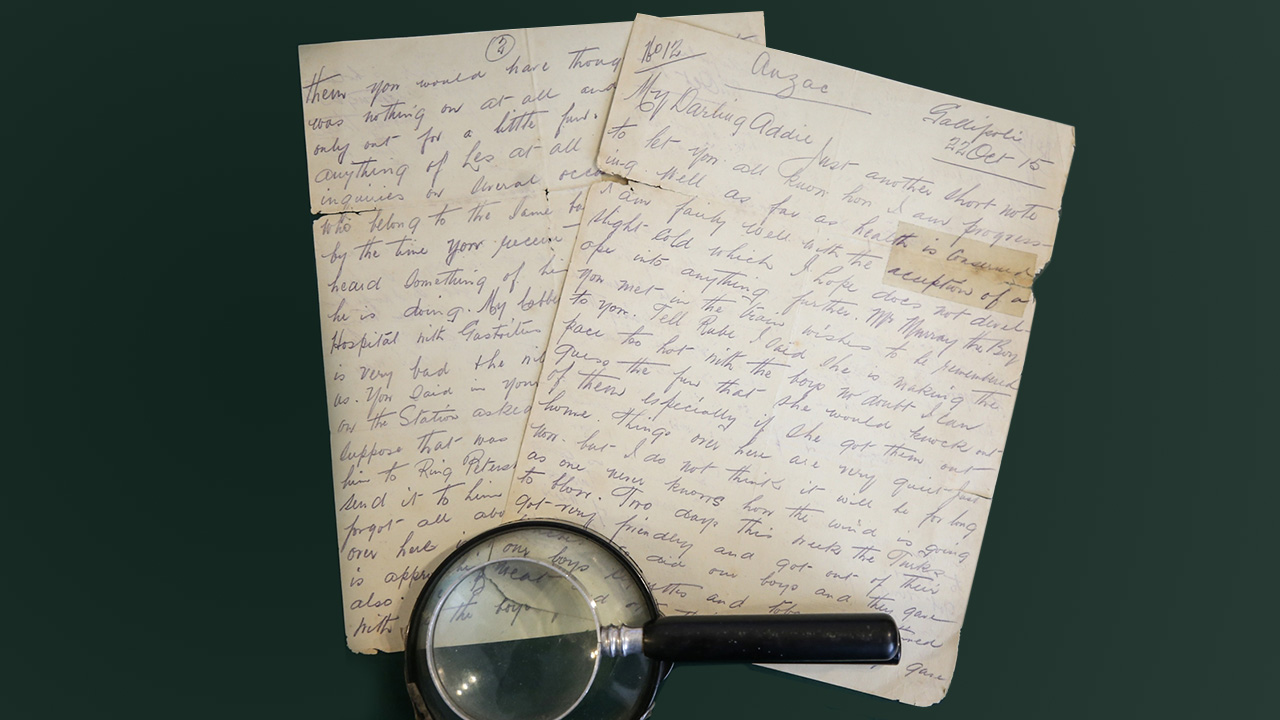 2
them you would have thoug
was nothing on at all and
only out for a little fun.
anything of Les at all
inquiries on several occa
who belong to the same
by the time you receive
heard something of hi
he is doing. My
Hospital with Gastritis
is very bad & the
as. You said in your
on the Station asked
suppose that was
him to Ring Peters
send it to him
forgot all abo
over here
is appre
also.
with
No 12
Anzac
Gallipoli
22 Oct 15
My Darling Addie
Just another short note
to let you all know how I am progress-
ing. Well as far as health is concerned
I am fairly well with the acception of a
slight cold which I hope does not devel-
ope into anything further. Mr Murray the Boy
you met in the train wishes to be remembered
to you. Tell Rube I said she is making the
pace too hot with the boys no doubt I can
guess the fun that she would knock out
of them especially if she got them out
home. Things over here are very quiet just
now. but I do not think it will be for long
as one never knows how the wind is going
to blow. Two days this week the Turks
got very friendly and got out of their
so did our boys and they gave
our boys and
meat
the boys
gave